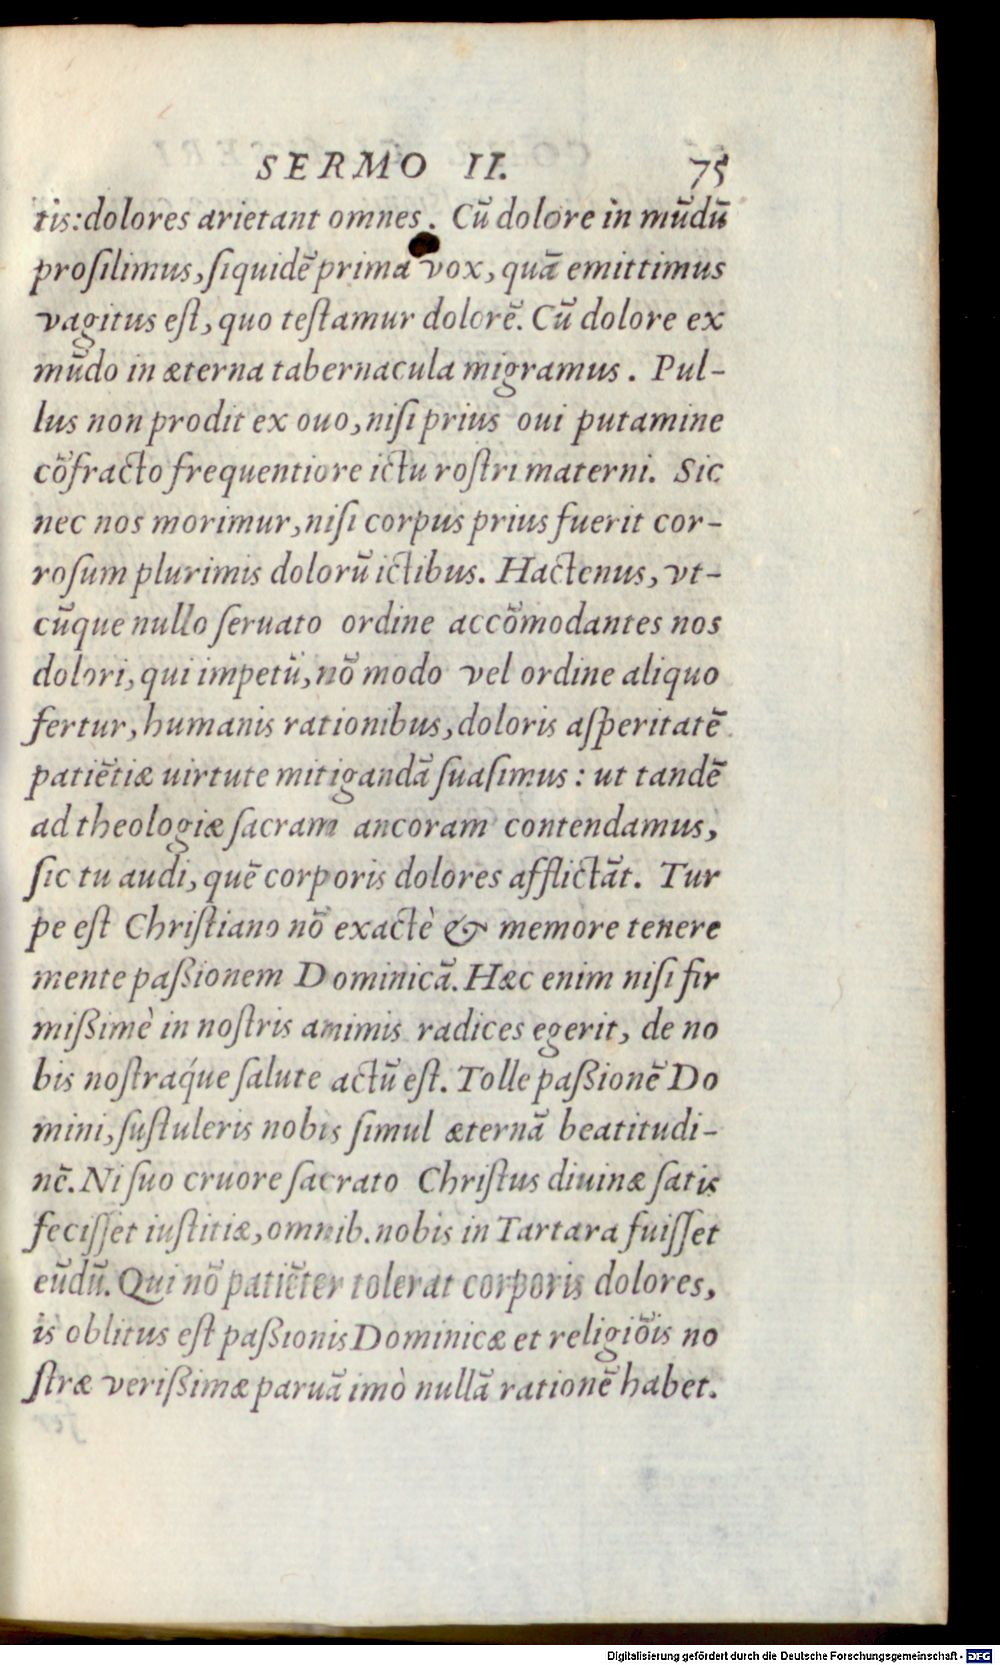 SERMO II. 75
tis: dolores arietant omnes. Cū dolore in mūdū
proſilimus, ſiquidē prima vox, quā emittimus
vagitus eſt, quo teſtamur dolorē. Cū dolore ex
mūdo in æterna tabernacula migramus. Pul-
lus non prodit ex ouo, niſi prius oui putamine
cōfracto frequentiore ictu roſtri materni. Sic
nec nos morimur, niſi corpus prius fuerit cor-
roſum plurimis dolorū ictibus. Hactenus, vt-
cūque nullo ſeruato ordine accōmodantes nos
dolori, qui impetū, nō modo vel ordine aliquo
fertur, humanis rationibus, doloris aſperitatē
patiētiæ uirtute mitigandā ſuaſimus: ut tandē
ad theologiæ ſacram ancoram contendamus,
ſic tu audi, quē corporis dolores afflictāt. Tur
pe eſt Chriſtiano nō exactè & memore tenere
mente paßionem Dominicā. Hæc enim niſi fir
mißimè in noſtris animis radices egerit, de no
bis noſtraq́ue ſalute actū eſt. Tolle paßionē Do
mini, ſuſtuleris nobis ſimul æternā beatitudi-
nē. Ni ſuo cruore ſacrato Chriſtus diuinæ ſatis
feciſſet iuſtitiæ, omnib. nobis in Tartara fuiſſet
eūdū. Qui nō patiēter tolerat corporis dolores,
is oblitus eſt paßionis Dominicæ et religiōis no
ſtræ verißimæ paruā imò nullā rationē habet.
Digitalisierung gefördert durch die Deutsche Forschungsgemeinschaft - DFG